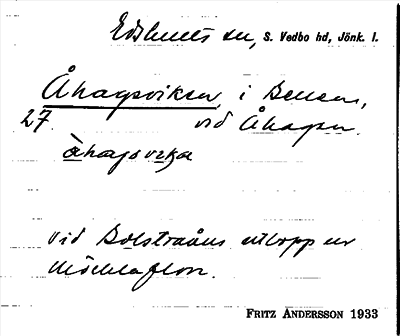 Edshults sn, S. Vedbo hd, Jönk. l.
Åhagsviken, i Bellen,
27 vid Åhagen.
åhagsvika
vid Bolstraåns utlopp ur
Mörhlaflon.
FRITZ ANDERSSON 1933